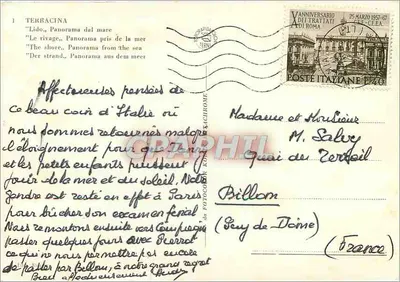 1 TERRACINA
"Lido,, Panorama dal mare
"Le rivage,, Panorama pris de la mer
"The shore,, Panorama from the sea
"Der strand,, Panorama aus dem meer
X ANNIVERSARIO DEI TRATTATI DI ROMA
25 MARZO 1957-67
CEEA
POSTE ITALIANE L.40
Affectueuses pensées de
ce beau coin d'Italie où
nous sommes retournés malgré
l'éloignement pour que
et les petits enfants puissent
jouir de la mer et du soleil. Notre
gendre est resté en effet à Paris
pour bûcher son examen final
Nous remontons ensuite vers Compiègne
passer quelques jours avec Pierrot
ce qui ne nous permettra pas encore
de passer par Billom, à notre grand regret
Bien affectueusement
Madame et Monsieur
M. Salvy
Quai du Terrail
Billom
(Puy de Dôme)
(France)
CPARAMA